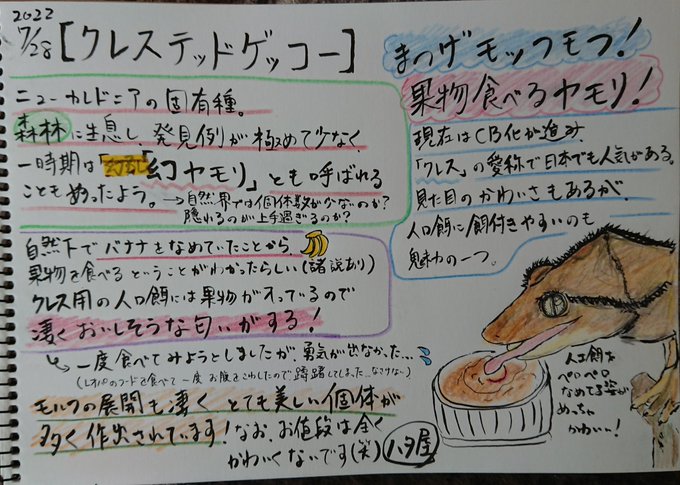 2022
7/28
[クレステッドゲッコー]
まつげモッフモフ!
果物食べるヤモリ!
ニューカレドニアの固有種。
森林に生息し、発見例が極めて少なく、
一時期は「幻ヤモリ」とも呼ばれる
こともあったよう。
→自然界では個体数が少ないのか?
隠れるのが上手過ぎるのか?
現在はCB化が進み、
「クレス」の愛称で日本でも人気がある。
見た目のかわいさもあるが、
人口餌に餌付きやすいのも
魅力の一つ。
自然下でバナナをなめていたことから、
果物を食べるということがわかったらしい(諸説あり)
クレス用の人口餌には果物が入っているので
凄くおいしそうな匂いがする!
一度食べてみようとしましたが勇気が出なかった…
(レオパのフードを食べて一度お腹をこわしたので躊躇してしまった…なさけない)
モルフの展開も凄くとても美しい個体が
多く作出されています!なお、お値段は全く
かわいくないです(笑)
ハタ屋
人口餌を
ペロペロ
なめてる姿が
めっちゃ
かわいい!